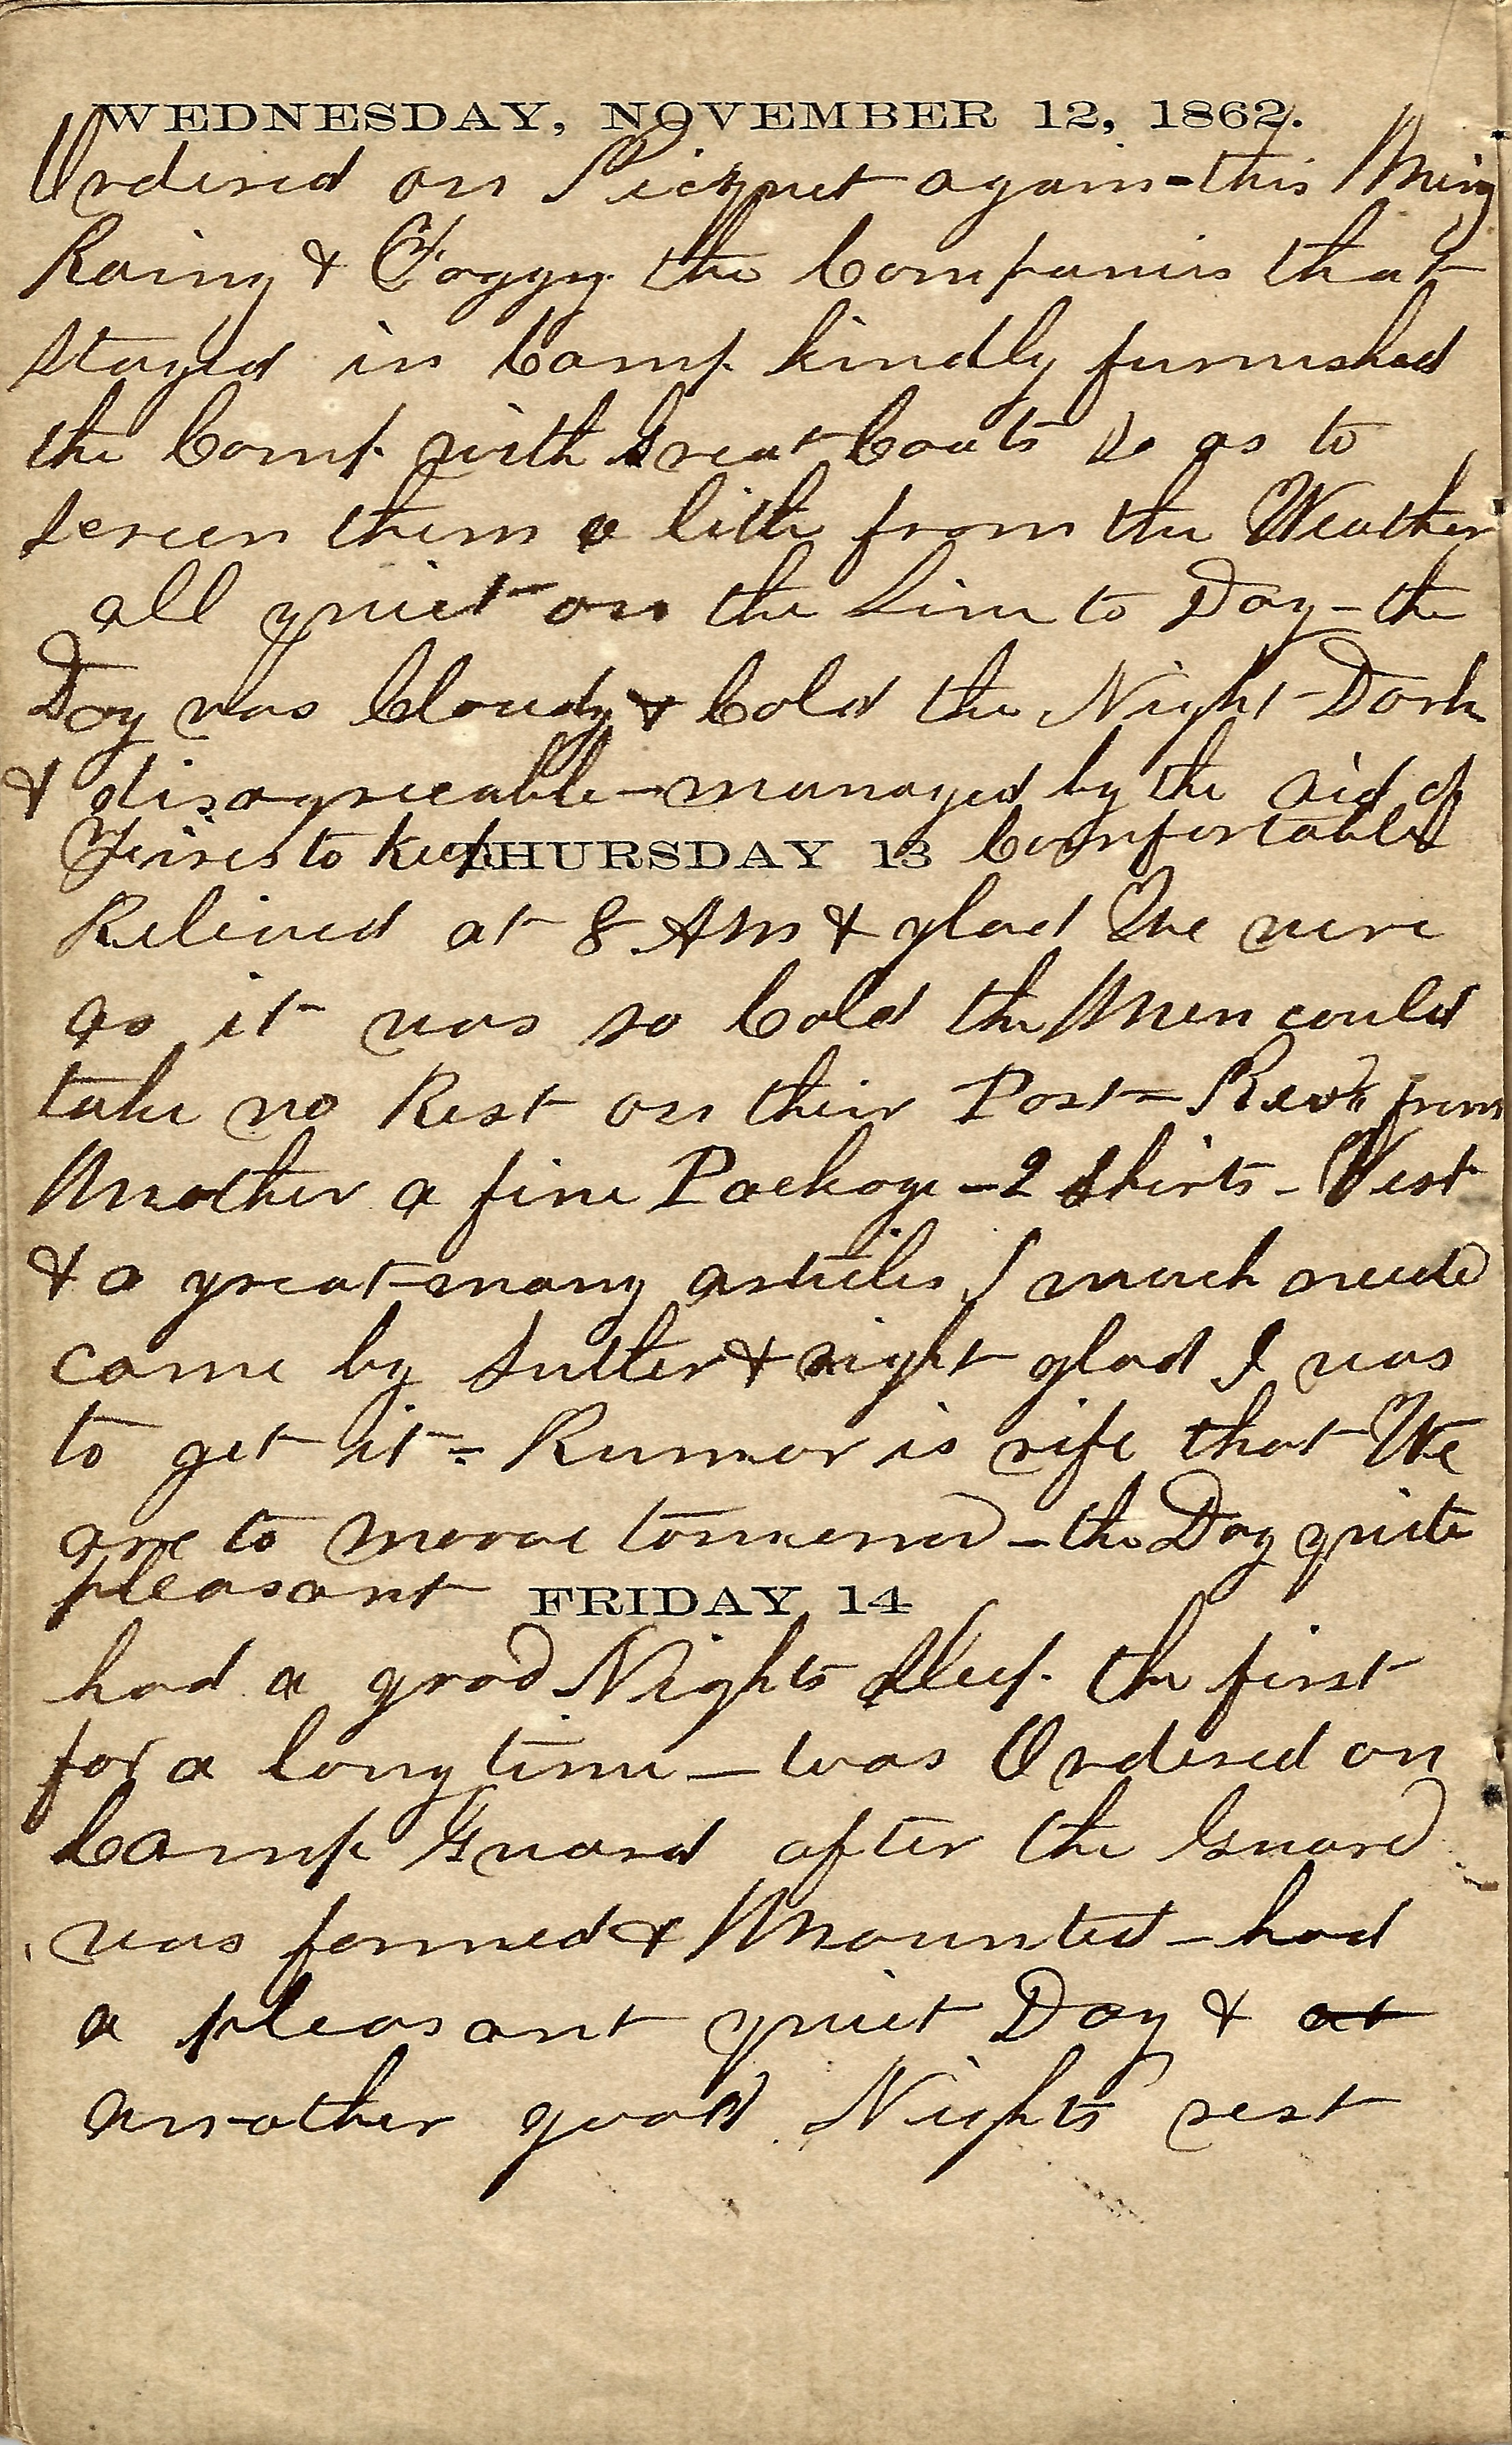 WEDNESDAY, NOVEMBER 12, 1862.
Ordered on Picquet again - this Mning
Rainy & Foggy. the Companies that
stayed in Camp kindly furnished
the Comp. with Great Coats so as to
screen them a little from the Weather
all quiet on the Line to Day - the
Day was Cloudy & Cold the Night Dark
& disagreeable - managed by the aid of
Fires to keep Comfortable
THURSDAY 13
Relieved at 8 AM & glad We were
as it was so Cold the Men could
take no Rest on their Post = Recd from
Mother a fine Package - 2 Shirts - Vest
& a great many articles I much need
came by Sutler & right glad I was
to get it = Rumor is rife that We
are to moove tomorrow - the Day quite
pleasant
FRIDAY 14
had a good Nights Sleep. the first
for a long time - was Ordered on
Camp Guard after the Guard
was formed & Mounted - had
a pleasant quiet Day & at
another good Nights rest